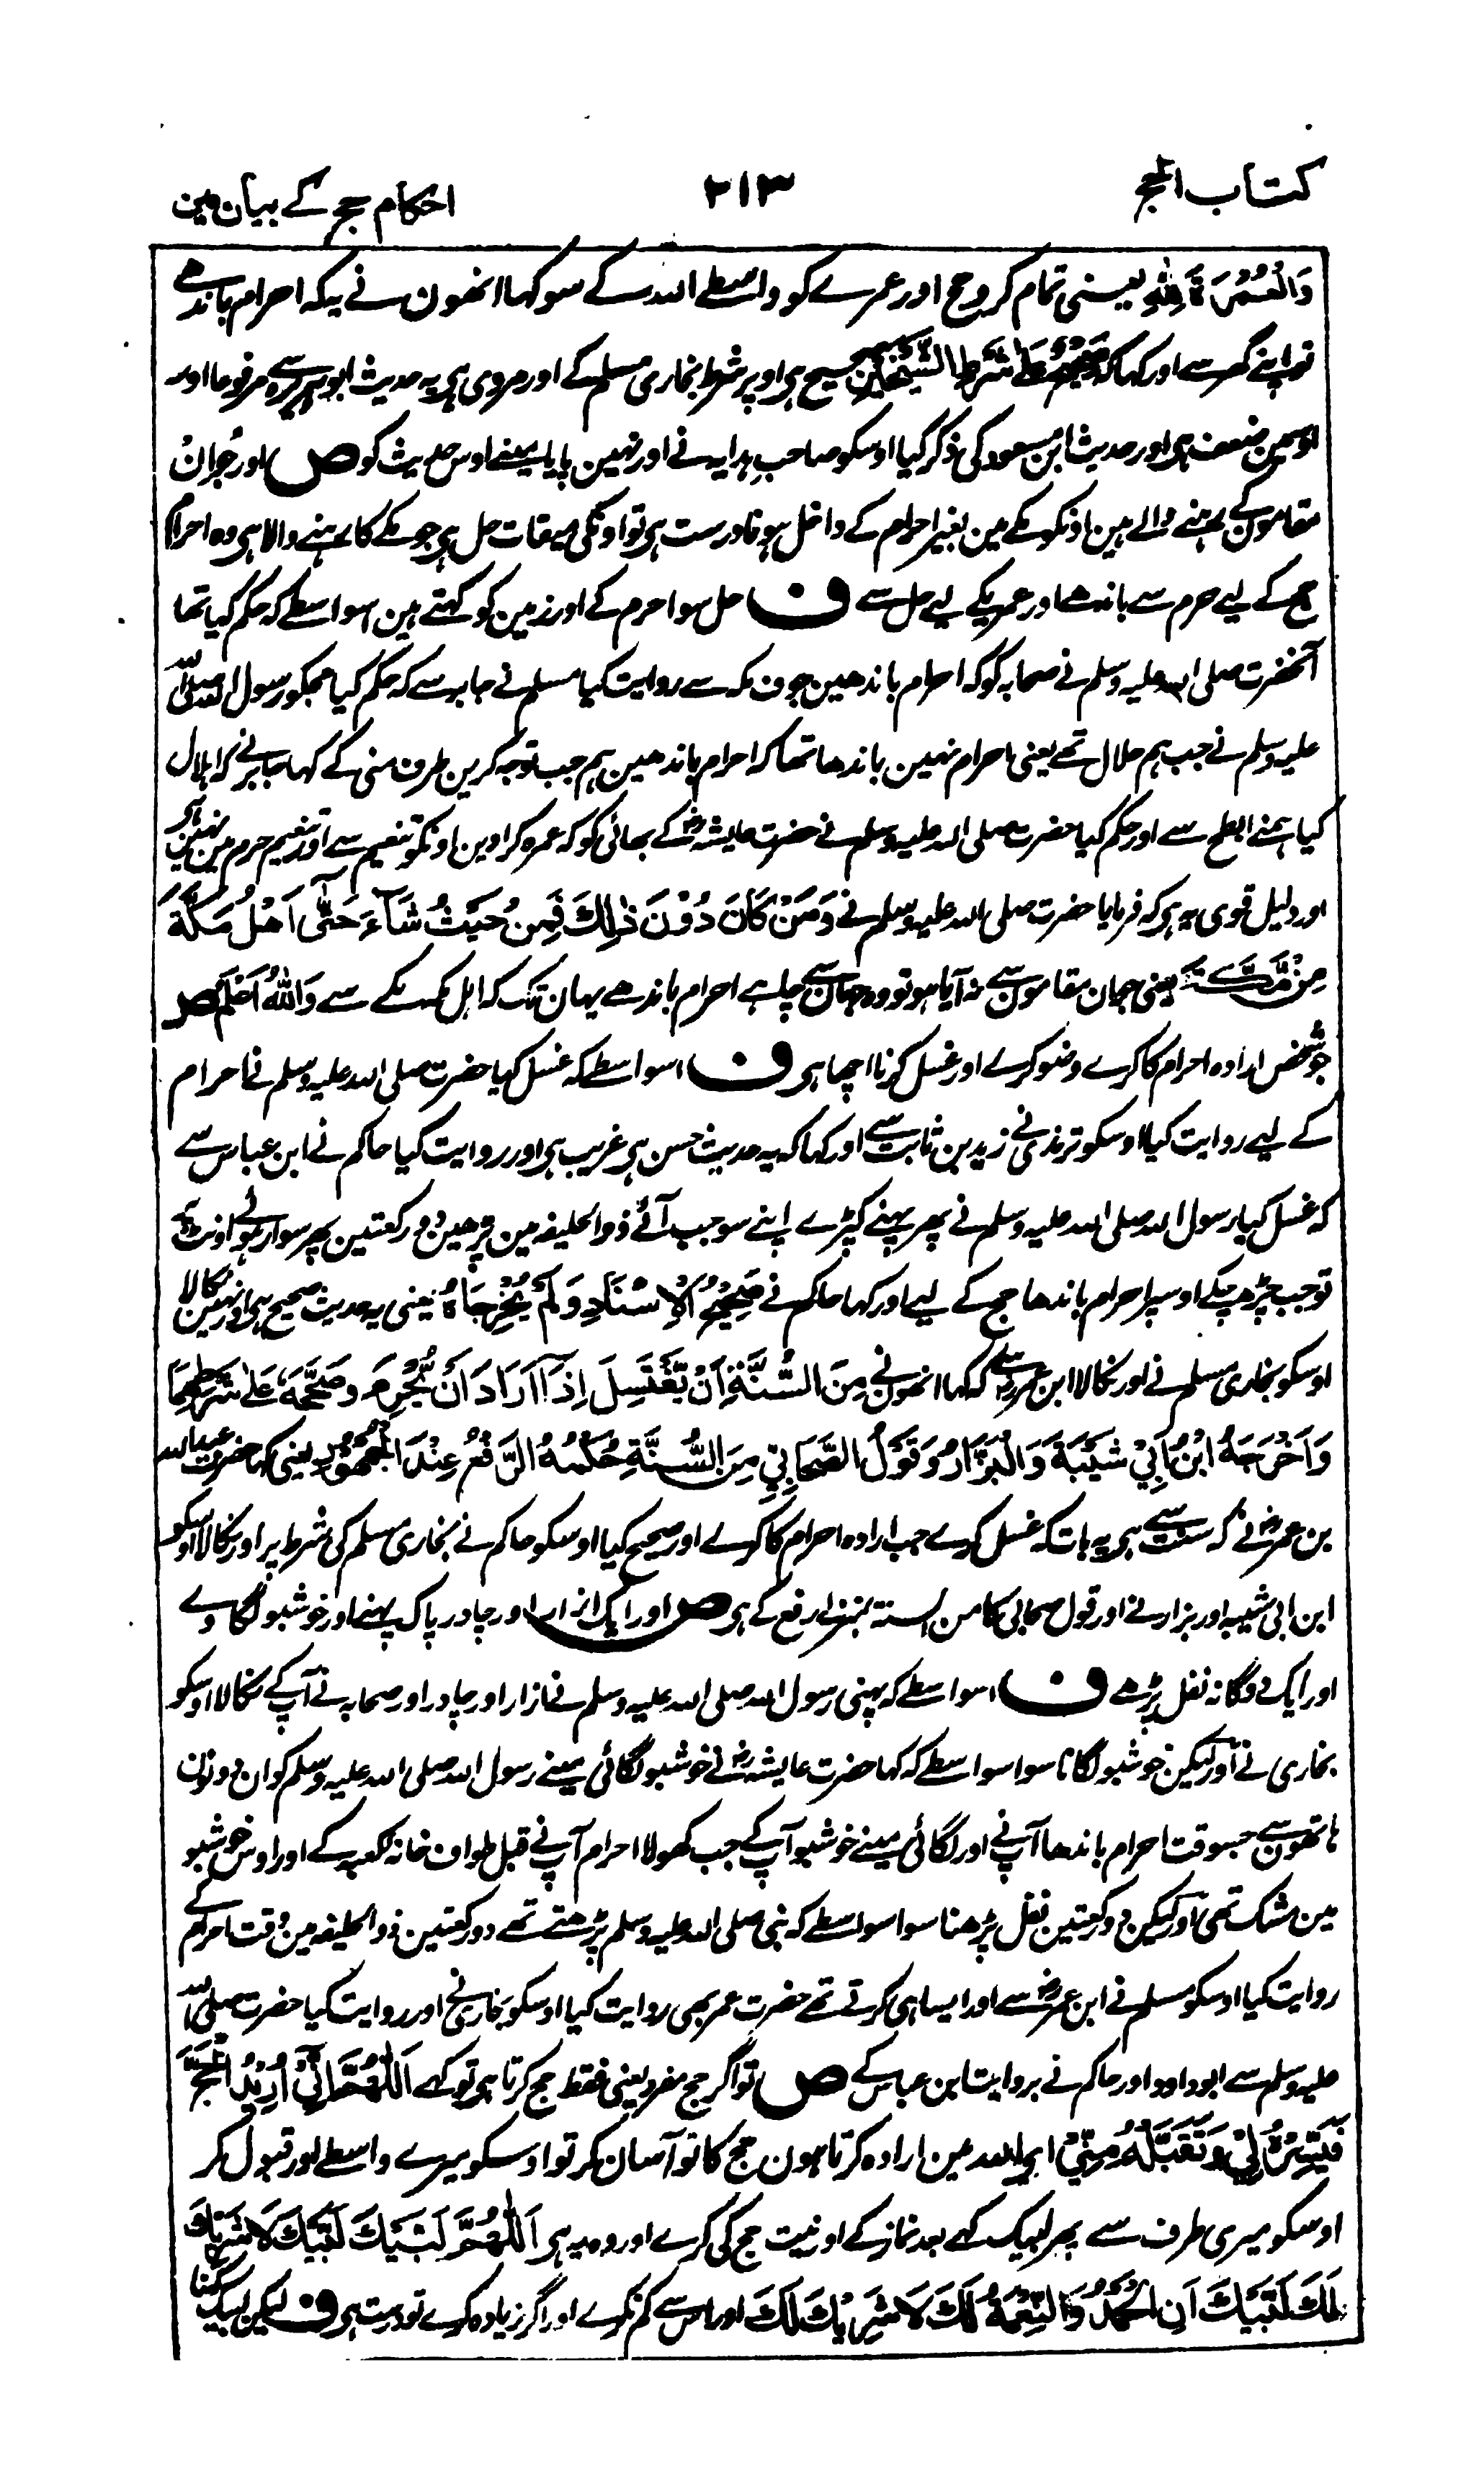 کتاب الحج
۲۱۳
احکام حج کے بیان مین
وَالْعُمْرَةَ لِلّٰهِ یعنی تمام کرو حج اور عمرے کو واسطے اللہ کے سو کہا انھون نے یہکہ احرام باندھے
تو اپنے گھر سے اور کہا کہ صَحِیْحٌ عَلٰی شَرْطِ الشَّیْخَیْنِ صحیح ہی اوپر شرط بخاری مسلم کے اور مروی ہی یہ حدیث ابوہریرہ سے مرفوعا اور
اوسمین ضعف ہی اور حدیث ابن مسعود کی ذکر کیا اوسکو صاحب ہدایہ نے اور نہین پایا مینے اوس حدیث کو ص اور جو ان
مقامون کے رہنے والے ہین اونکو مکے مین بغیر احرام کے داخل ہونا درست ہی تو اونکی میقات حل ہی جو مکے کا رہنے والا ہی وہ احرام
حج کے لیے حرم سے باندھے اور عمریکے لیے حل سے ف حل سوا حرم کے اور زمین کو کہتے ہین اسواسطے کہ حکم کیا تھا
آنحضرت صلی اللہ علیہ وسلم نے صحابہ کو کہ احرام باندھین جوف مکہ سے روایت کیا مسلم نے جابر سے کہ حکم کیا ہمکو رسول اللہ صلی اللہ
علیہ وسلم نے جب ہم حلال تھے یعنی احرام نہین باندھا تھا کہ احرام باندھین ہم جب توجہ کرین طرف منی کے کہا جابر نے کہ اہلال
کیا ہمنے ابطح سے اور حکم کیا حضرت صلی اللہ علیہ وسلم نے حضرت عایشہؓ کے بھائی کو کہ عمرہ کراوین اونکو تنعیم سے اور تنعیم حرم مین نہین ہی
اور دلیل قوی یہ ہی کہ فرمایا حضرت صلی اللہ علیہ وسلم نے وَمَنْ كَانَ دُوْنَ ذٰلِكَ فَمِنْ حَیْثُ شَآءَ حَتّٰی اَهْلُ مَكَّةَ
مِنْ مَّكَّةَ یعنی جہان مقامون سے نہ آیا ہو تو وہ جہان سے چاہے احرام باندھے یہان تک کہ اہل مکہ مکے سے وَاللّٰهُ اَعْلَمُ ص
جو شخص ارادہ احرام کا کرے وضو کرے اور غسل کرنا اچھا ہی ف اسواسطے کہ غسل کیا حضرت صلی اللہ علیہ وسلم نے احرام
کے لیے روایت کیا اوسکو ترمذی نے زید بن ثابت سے اور کہا کہ یہ حدیث حسن ہی غریب ہی اور روایت کیا حاکم نے ابن عباس سے
کہ غسل کیا رسول اللہ صلی اللہ علیہ وسلم نے پھر پہنے کپڑے اپنے سو جب آئے ذوالحلیفہ مین پڑھین دو رکعتین پھر سوار ہوئے اونٹ پر
تو جب چڑھ چکے اوسپر احرام باندھا حج کے لیے اور کہا حاکم نے صَحِیْحُ الْاِسْنَادِ وَلَمْ یُخْرِجَاهُ یعنی یہ حدیث صحیح ہی اور نہین نکالا
اوسکو بخاری مسلم نے اور نکالا ابن عمرؓ سے کہ کہا انھون نے مِنَ السُّنَّةِ اَنْ یَّغْتَسِلَ اِذَآ اَرَادَ اَنْ یُّحْرِمَ وَصَحَّحَهٗ عَلٰی شَرْطِهِمَا
وَاَخْرَجَهُ ابْنُ اَبِیْ شَیْبَةَ وَالْبَزَّارُ وَقَوْلُ الصَّحَابِیِّ مِنَ السُّنَّةِ حُكْمُهُ الرَّفْعُ عِنْدَ الْجُمْهُوْرِ یعنی کہا حضرت عبداللہ
بن عمرؓ نے کہ سنت سے ہی یہ بات کہ غسل کرے جب ارادہ احرام کا کرے اور صحیح کیا اوسکو حاکم نے بخاری مسلم کی شرط پر اور نکالا اوسکو
ابن ابی شیبہ اور بزار نے اور قول صحابی کا من السنة بمنزلے رفع کے ہی ص اور ایک ازار اور چادر پاک پہنے اور خوشبو لگاوے
اور ایک دوگانہ نفل پڑھے ف اسواسطے کہ پہنی رسول اللہ صلی اللہ علیہ وسلم نے ازار اور چادر اور صحابہ نے آپ کے نکالا اوسکو
بخاری نے اور لیکن خوشبو لگانا سو اسواسطے کہ کہا حضرت عایشہؓ نے خوشبو لگائی مینے رسول اللہ صلی اللہ علیہ وسلم کو ان دونون
ہاتھون سے جسوقت احرام باندھا آپ نے اور لگائی مینے خوشبو آپ کے جب کھولا احرام آپ نے قبل طواف خانہ کعبہ کے اور اوس خوشبو
مین مشک تھی اور لیکن دو رکعتین نفل پڑھنا سو اسواسطے کہ نبی صلی اللہ علیہ وسلم پڑھتے تھے دو رکعتین ذوالحلیفہ مین وقت احرام کے
روایت کیا اوسکو مسلم نے ابن عمرؓ سے اور ایسا ہی کرتے تھے حضرت عمر بھی روایت کیا اوسکو بخاری نے اور روایت کیا حضرت صلی اللہ
علیہ وسلم سے ابوداود اور حاکم نے بروایت ابن عباس کے ص تو اگر حج مفرد یعنی فقط حج کرتا ہی تو کہے اَللّٰهُمَّ اِنِّیْ اُرِیْدُ الْحَجَّ
فَیَسِّرْهُ لِیْ وَتَقَبَّلْهُ مِنِّیْ ای اللہ مین ارادہ کرتا ہون حج کا تو آسان کر تو اوسکو میرے واسطے اور قبول کر
اوسکو میری طرف سے پھر لبیک کہے بعد نماز کے اور نیت حج کی کرے اور وہ یہ ہی اَللّٰهُمَّ لَبَّیْكَ لَبَّیْكَ لَا شَرِیْكَ
لَكَ لَبَّیْكَ اَنِ الْحَمْدُ وَالنِّعْمَةُ لَكَ لَا شَرِیْكَ لَكَ اور اس سے کم نکرے اور اگر زیادہ کرے تو درست ہی ف لیکن لبیک کہنا